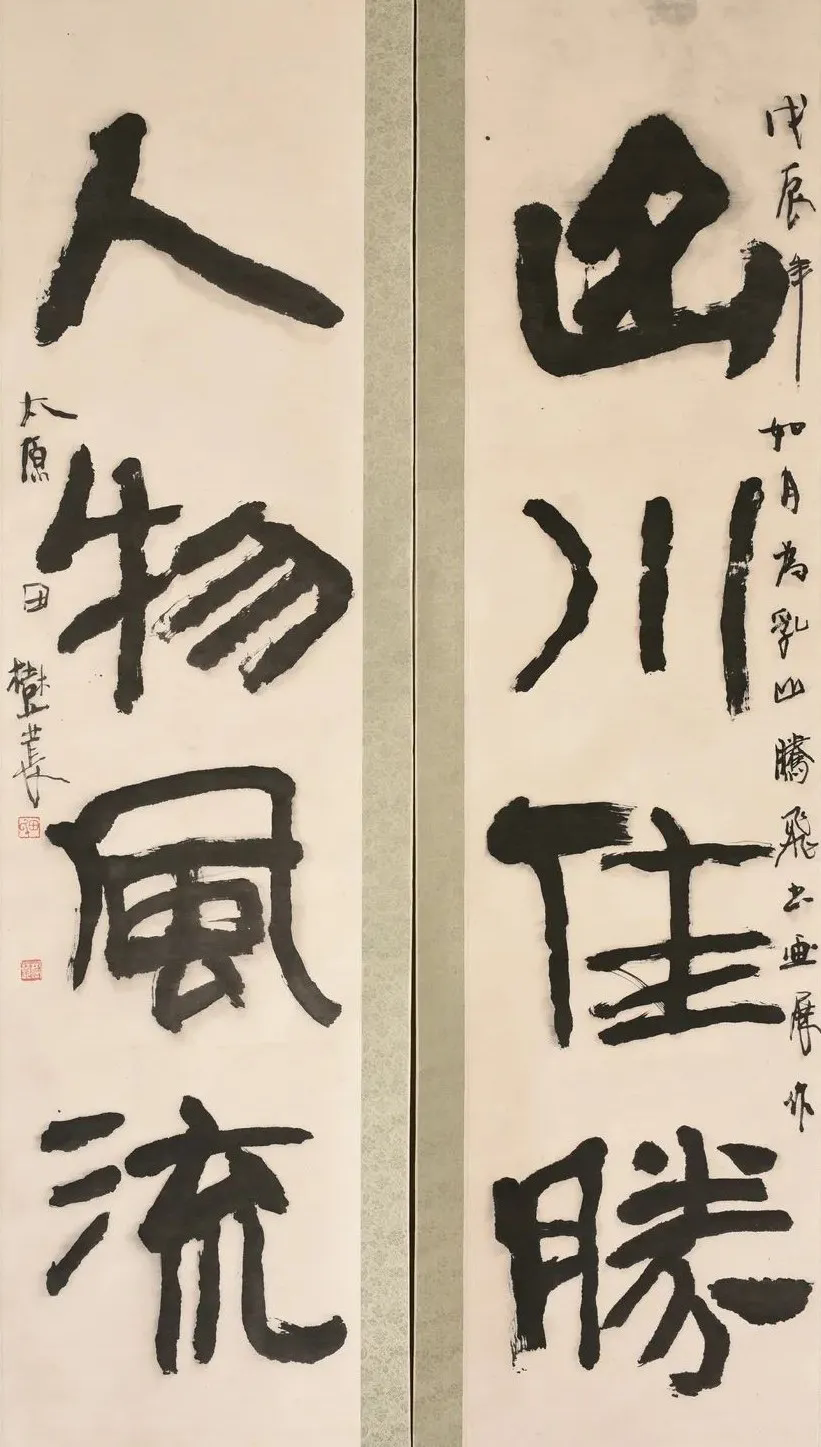 戊辰年如月為乳山騰飛书画展作
山川佳勝
人物風流
太原田樹萇